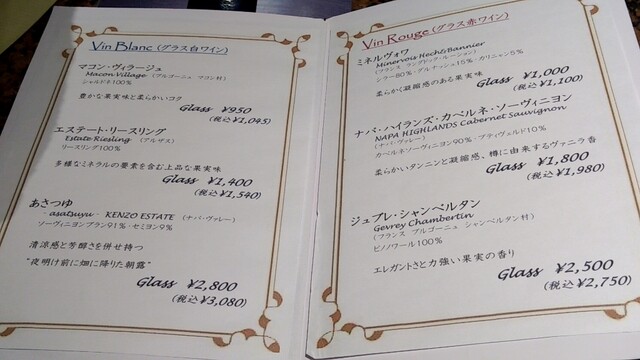 Vin Blanc (グラス白ワイン)
マコン・ヴィラージュ
Macon Village (ブルゴーニュ マコン村)
シャルドネ100%
豊かな果実味と柔らかいコク
Glass ¥950
(税込¥1,045)
エステート・リースリング
Estate Riesling (アルザス)
リースリング100%
多様なミネラルの要素を含む上品な果実味
Glass ¥1,400
(税込¥1,540)
あさつゆ
- asatsuyu - KENZO ESTATE (ナパ・ヴァレー)
ソーヴィニヨンブラン91%・セミヨン9%
清涼感と芳醇さを併せ持つ
"夜明け前に畑に降りた朝露"
Glass ¥2,800
(税込¥3,080)
Vin Rouge (グラス赤ワイン)
ミネルヴォワ
Minervois Hech&Bannier
(フランス ラングドック・ルーション)
シラー80%・グルナッシュ15%・カリニャン5%
柔らかく凝縮感のある果実味
Glass ¥1,000
(税込¥1,100)
ナパ・ハイランズ・カベルネ・ソーヴィニヨン
NAPA HIGHLANDS Cabernet Sauvignon
(ナパ・ヴァレー)
カベルネソーヴィニヨン90%・プティヴェルド10%
柔らかいタンニンと凝縮感、樽に由来するヴァニラ香
Glass ¥1,800
(税込¥1,980)
ジュブレ・シャンベルタン
Gevrey Chambertin
(フランス ブルゴーニュ シャンベルタン村)
ピノノワール100%
エレガントさと力強い果実の香り
Glass ¥2,500
(税込¥2,750)